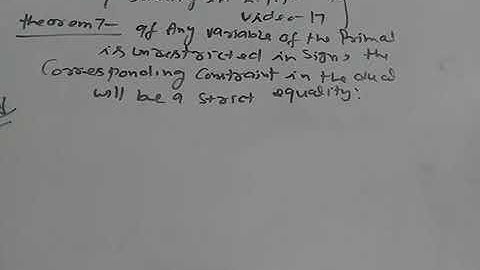 video-17
theorem7- If Any variable of the Primal
is unrestricted in sign, the
Corresponding Constraint in the dual
will be a strict equality: